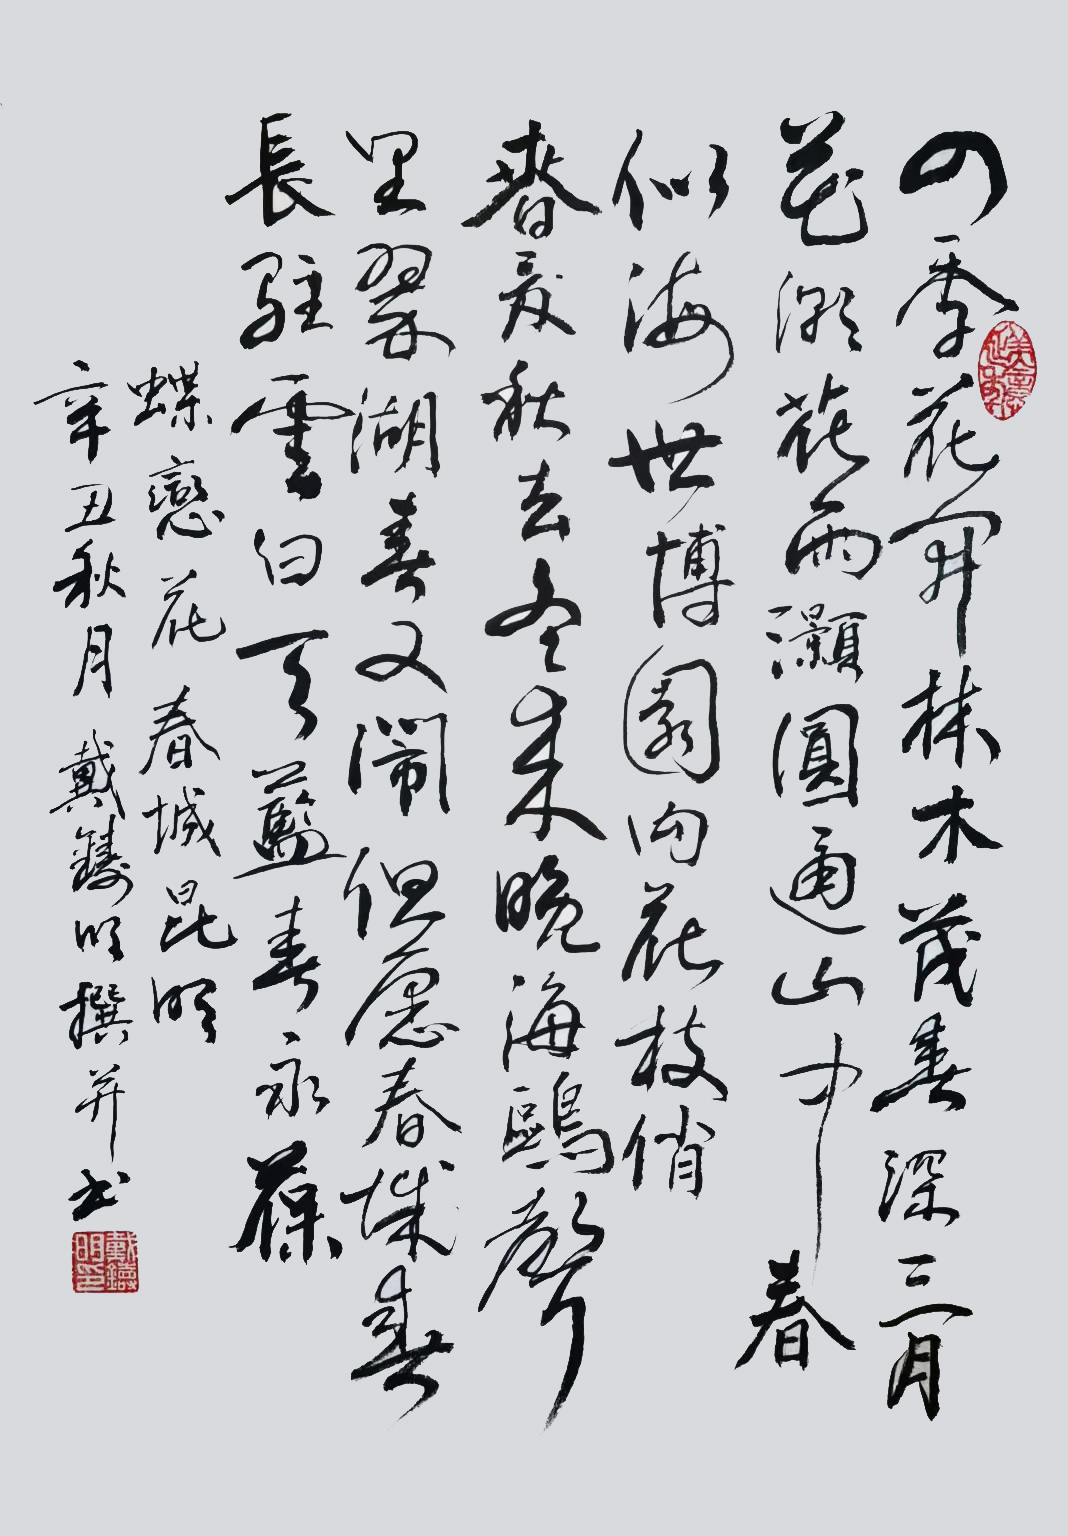 四季花開林木茂春深三月
花潮花雨灝圓通山中春
似海世博園内花枝俏
春夏秋去冬来晚海鷗聲
里翠湖春又闹但愿春城春
長駐雲白天藍春永葆
蝶戀花 春城昆明
辛丑秋月 戴鑄明撰并书
戴鑄明印